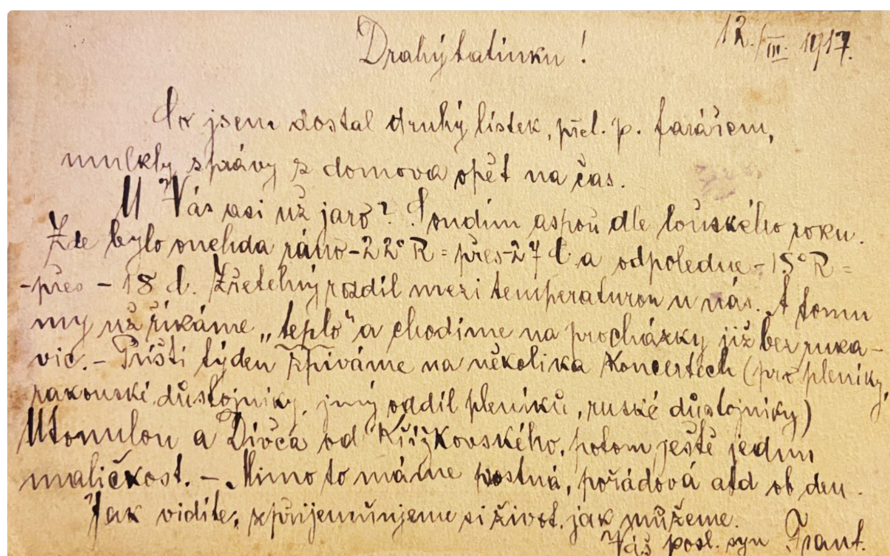 12./III. 1917.
Drahý tatínku!
To jsem dostal druhý lístek, přel. p. farářem,
zprávy z domova opět na čas.
U Vás asi už jaro? Soudím aspoň dle loňského roku.
Zde bylo onehda ráno -22°R = přes -27 C a odpoledne -15°R =
-přes -18 C. Zřetelný rozdíl mezi temperaturou u nás. A tomu
my už říkáme „teplo" a chodíme na procházky již bez ruka-
vic. - Příští týden zpíváme na několika koncertech (pro pleníky,
rakouské důstojníky, jiný oddíl pleníků, ruské důstojníky)
Utonulou a Dívča od Křížkovského, potom ještě jednu
maličkost. - Mimo to máme postná, pořádová atd ob den.
Jak vidíte, zpříjemňujeme si život, jak můžeme.
Váš posl. syn Frant.